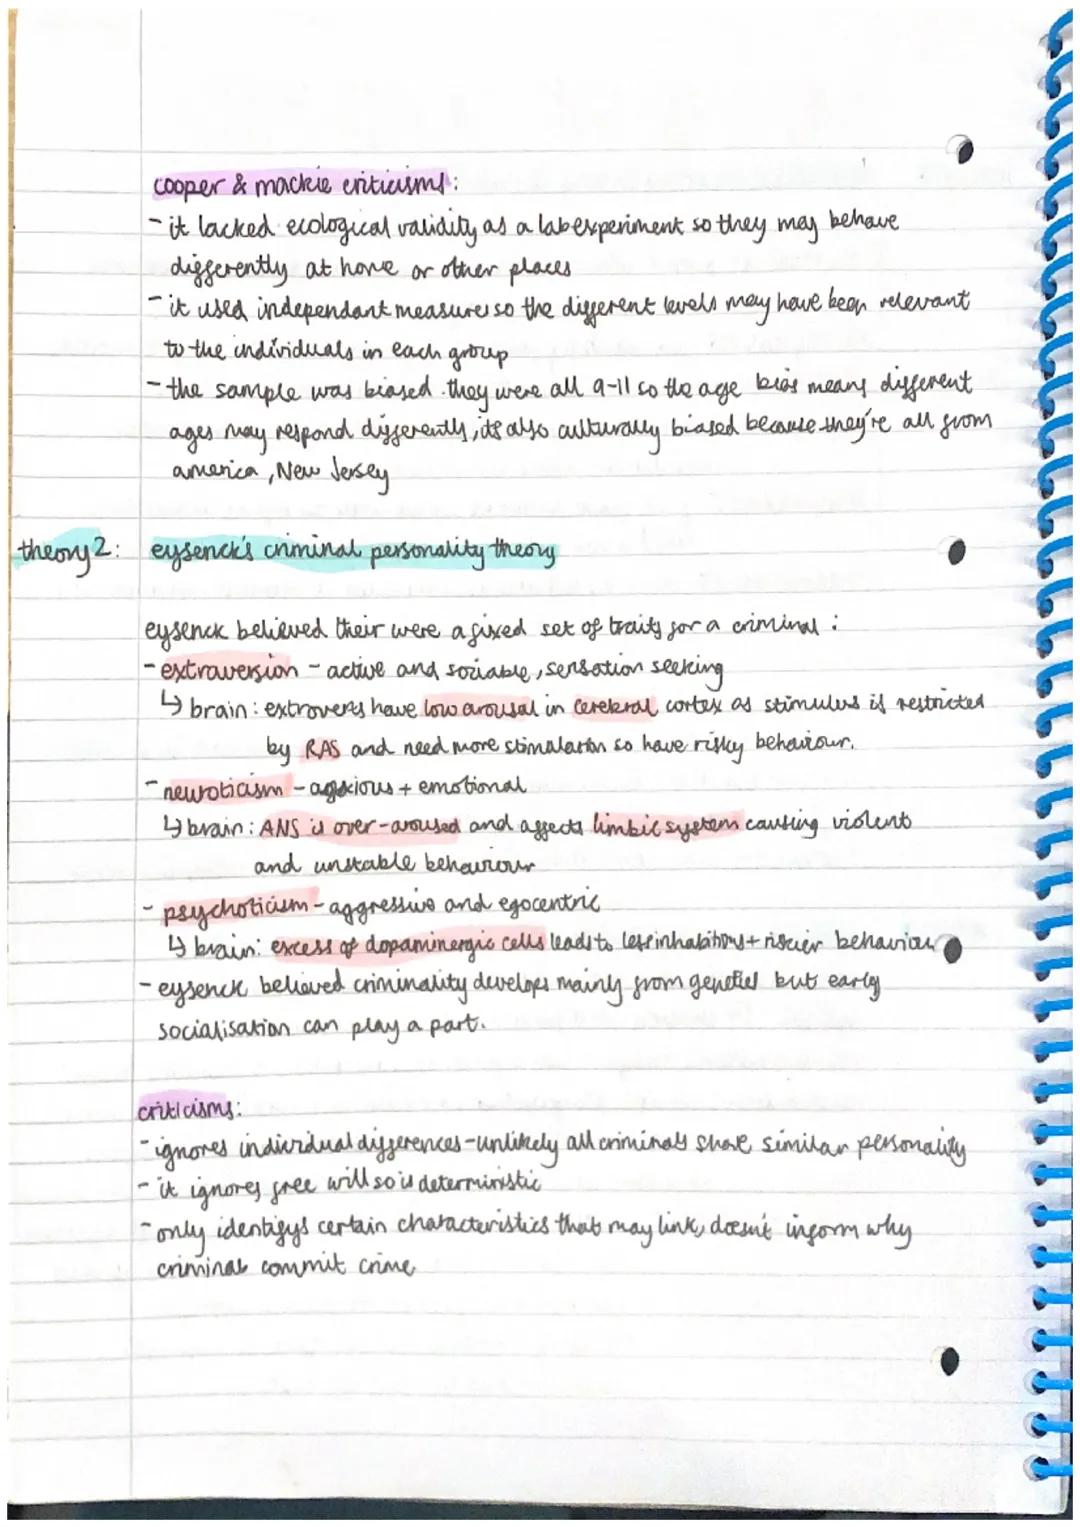 cooper & mackie criticisms:
- it lacked ecological validity as a lab experiment so they may behave
differently at home or other places
- it used independant measures so the different levels may have been relevant
to the individuals in each group
- the sample was biased. they were all 9-11 so the age bias means different
ages may respond differently, its also culturally biased because they're all from
america, New Jersey
theory 2: eysenck's criminal personality theory
eysenck believed their were a fixed set of traits for a criminal:
- extraversion - active and sociable, sensation seeking
↳ brain: extroverts have low arousal in cerebral cortex as stimulus is restricted
by RAS and need more stimulation so have risky behaviour.
- neuroticism - anxious + emotional
↳ brain: ANS is over-aroused and affects limbic system causing violent
and unstable behaviour
- psychoticism - aggressive and egocentric
↳ brain: excess of dopaminergic cells leads to less inhabitions + riskier behaviour
- eysenck believed criminality develops mainly from genetics but early
socialisation can play a part.
criticisms:
- ignores individual differences - unlikely all criminals share similar personality
- it ignores free will so is deterministic
- only identifys certain characteristics that may link, doesn't inform why
criminals commit crime